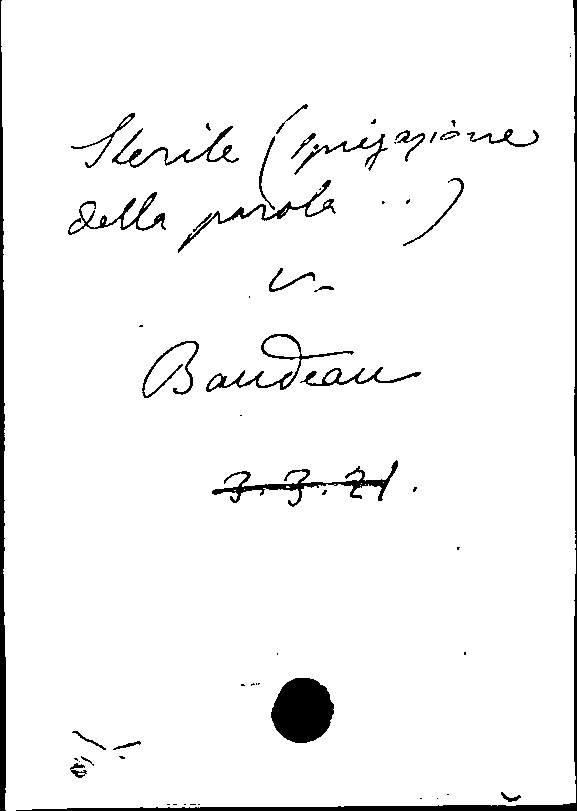 Sterile (spiegazione
della parola ..)
v.
Baudeau
3.3.21.